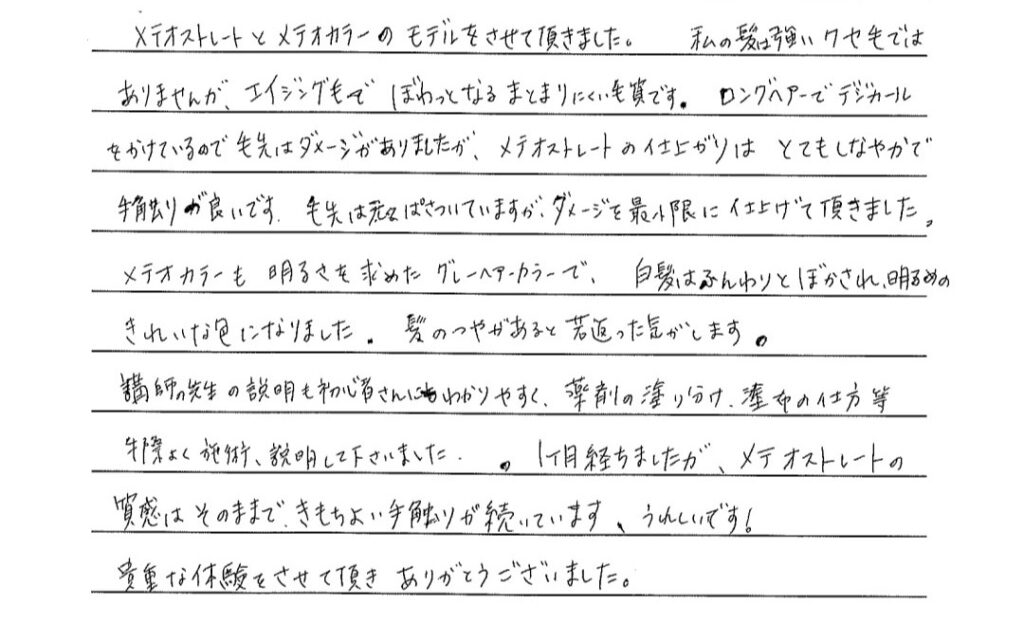 メテオストレートとメテオカラーのモデルをさせて頂きました。 私の髪は強いクセ毛では
ありませんが、エイジング毛で ぼわっとなるまとまりにくい毛質です。 ロングヘアーでデジカール
をかけているので毛先はダメージがありましたが、メテオストレートの仕上がりは とてもしなやかで
手触りが良いです。毛先は元々ぱさついていますが、ダメージを最小限に仕上げて頂きました。
メテオカラーも 明るさを求めた グレーヘアーカラーで、 白髪はふんわりとぼかされ、明るめの
きれいな色になりました。 髪のつやがあると若返った気がします。
講師の先生の説明も初心者さんにもわかりやすく、薬剤の塗り分け、塗布の仕方等
手際よく施術、説明して下さいました。 1ヶ月経ちましたが、メテオストレートの
質感はそのままで、きもちよい手触りが続いています、うれしいです!
貴重な体験をさせて頂き ありがとうございました。